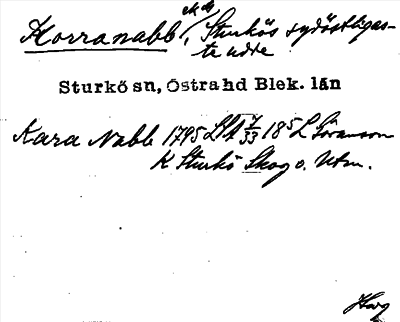 Korranabb, Sturkös sydöstligas-
te udde
Sturkö sn, Östra hd Blek. län
Kara Nabb 1795 LSA 7/33 1851 Svanson
K Sturkö Skog o. Utm.